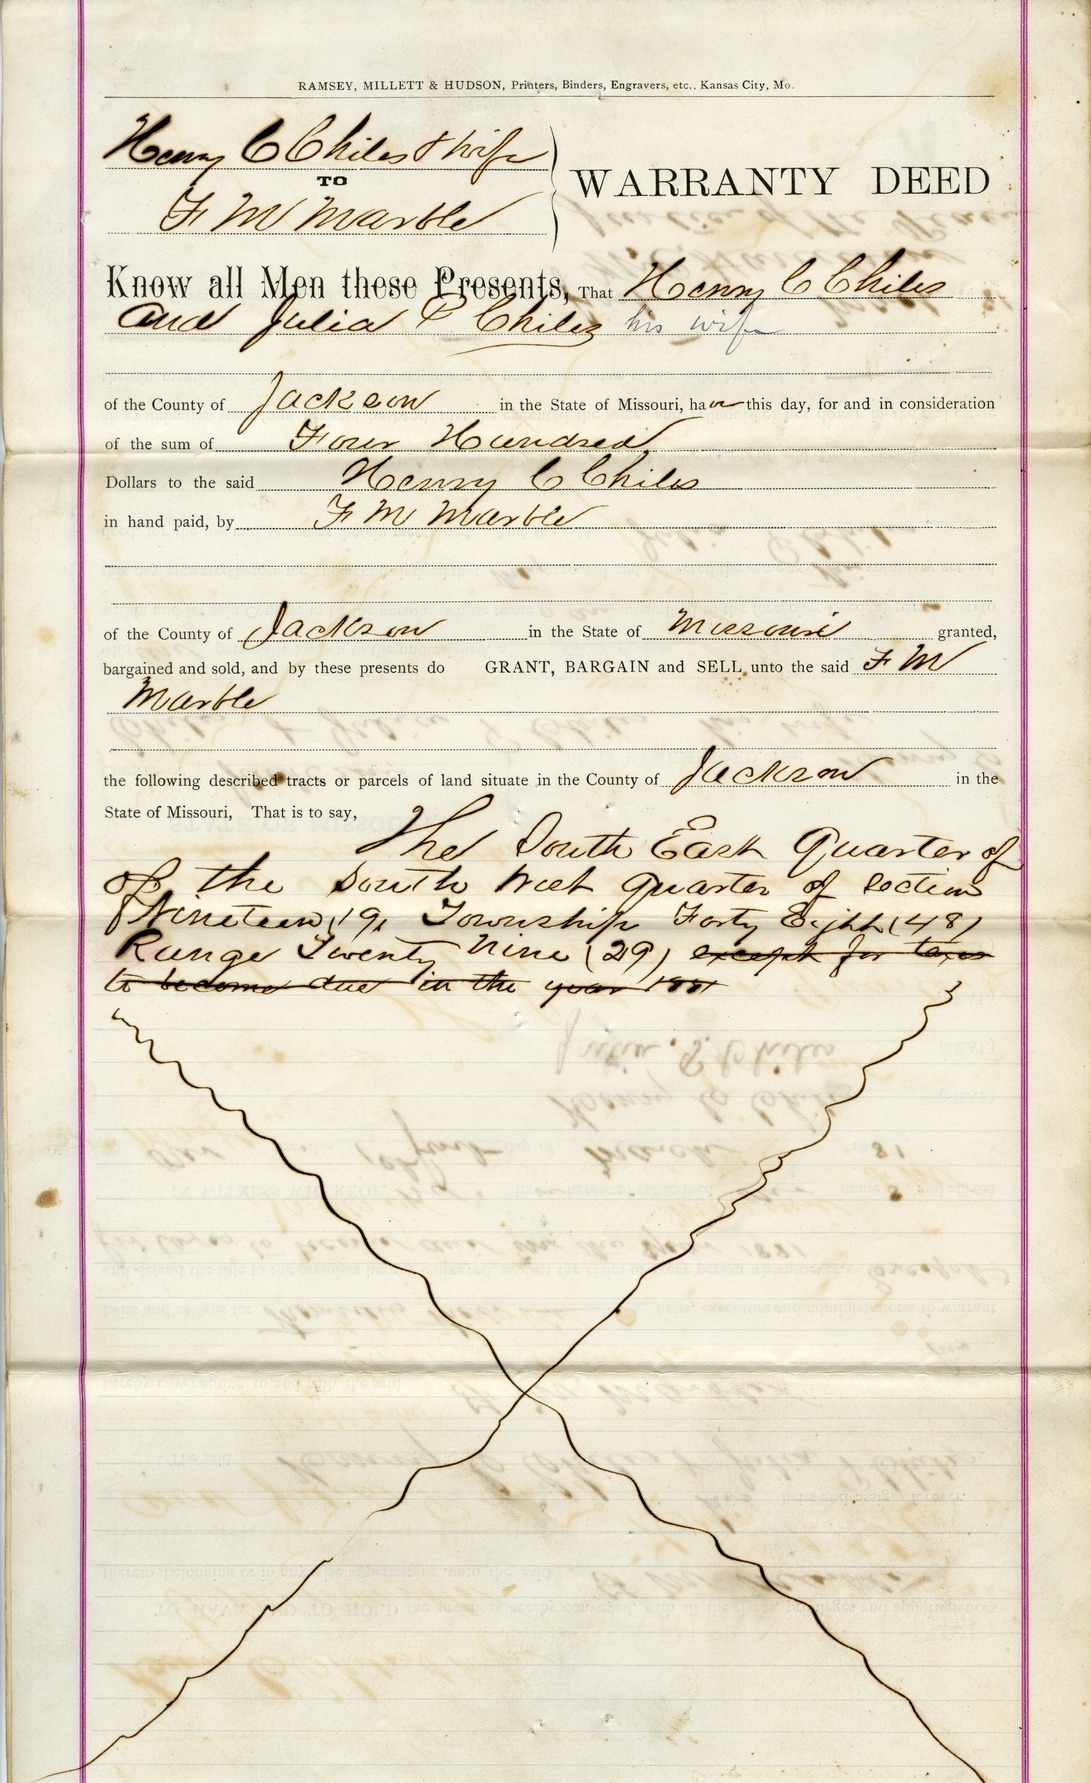 RAMSEY, MILLETT & HUDSON, Printers, Binders, Engravers, etc., Kansas City, Mo.
Henry C Chiles & wife
TO
F M Marble
WARRANTY DEED
Know all Men these Presents, That Henry C Chiles
and Julia P Chiles his wife
of the County of Jackson in the State of Missouri, have this day, for and in consideration
of the sum of Four Hundred
Dollars to the said Henry C Chiles
in hand paid, by F M Marble
of the County of Jackson in the State of Missouri granted,
bargained and sold, and by these presents do GRANT, BARGAIN and SELL unto the said F M
Marble
the following described tracts or parcels of land situate in the County of Jackson in the
State of Missouri, That is to say,
The South East Quarter of
of the South West quarter of section
Nineteen (19) Township Forty Eight (48)
Range Twenty Nine (29) except for taxes
to become due in the year 1881